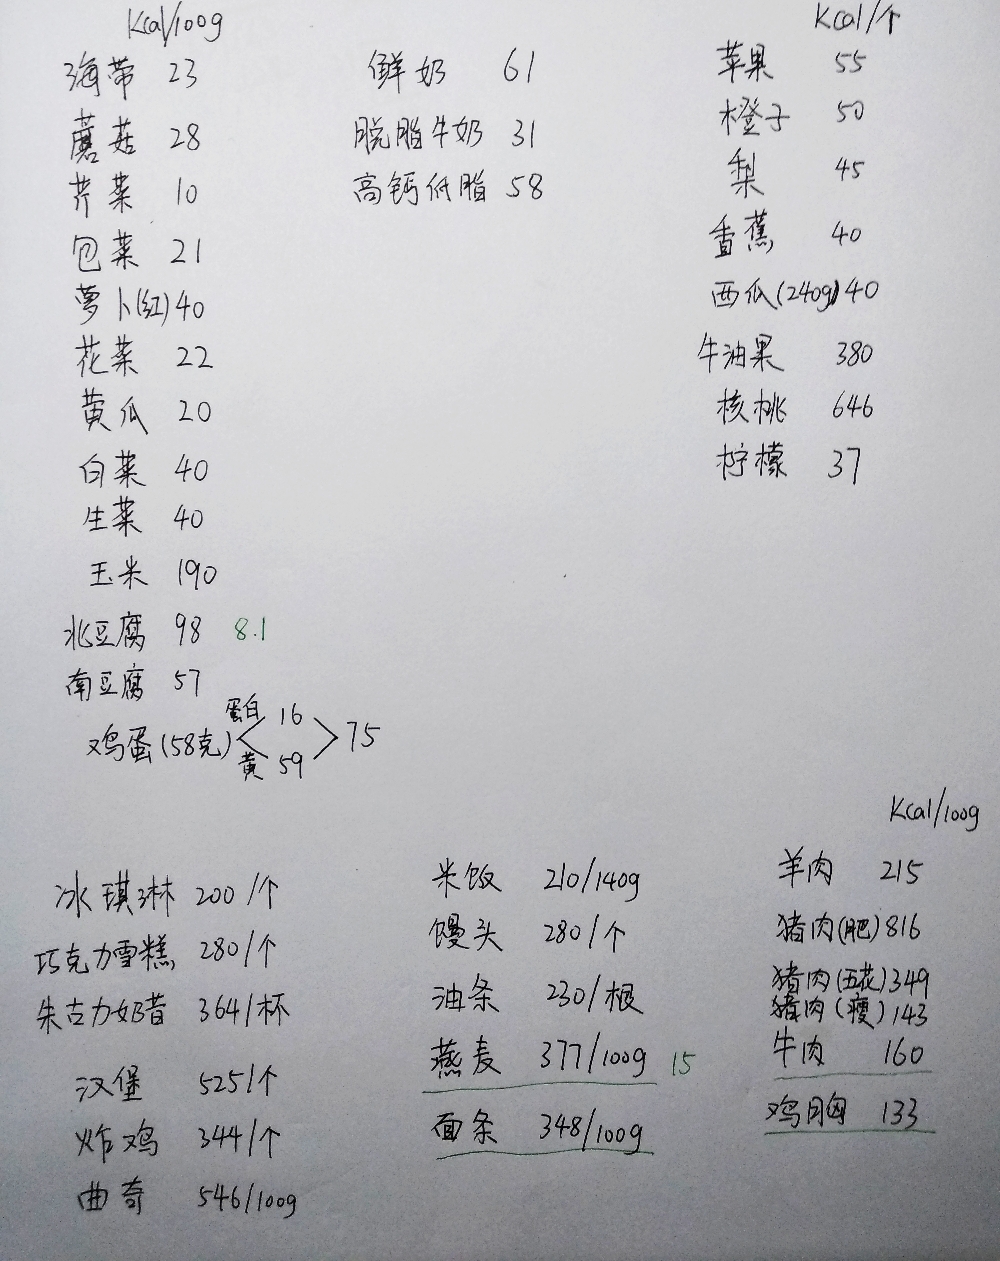 Kcal/100g
海带 23
蘑菇 28
芹菜 10
包菜 21
萝卜(红) 40
花菜 22
黄瓜 20
白菜 40
生菜 40
玉米 190
北豆腐 98 8.1
南豆腐 57
鸡蛋(58克) 蛋白 16 黄 59 75
鲜奶 61
脱脂牛奶 31
高钙低脂 58
Kcal/个
苹果 55
橙子 50
梨 45
香蕉 40
西瓜(240g) 40
牛油果 380
核桃 646
柠檬 37
冰琪淋 200/个
巧克力雪糕 280/个
朱古力奶昔 364/杯
汉堡 525/个
炸鸡 344/个
曲奇 546/100g
米饭 210/140g
馒头 280/个
油条 230/根
燕麦 377/100g 15
面条 348/100g
Kcal/100g
羊肉 215
猪肉(肥) 816
猪肉(五花) 349
猪肉(瘦) 143
牛肉 160
鸡胸 133